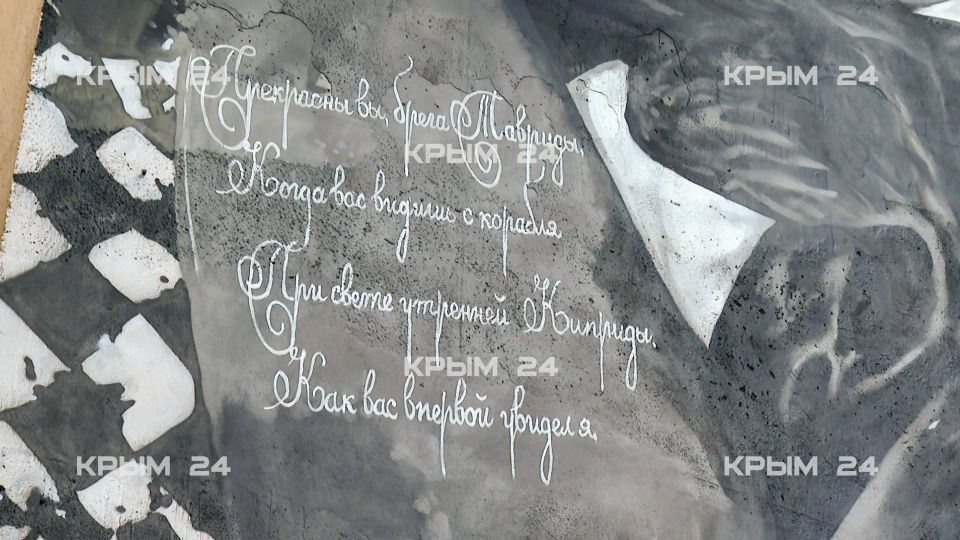 КРЫМ 24
КРЫМ 24
Прекрасны вы, брега Тавриды,
КРЫМ 24
Когда вас видишь с корабля
При свете утренней Киприды,
КРЫМ 24
Как вас впервой увидел я,
КРЫМ 24
КРЫМ 24